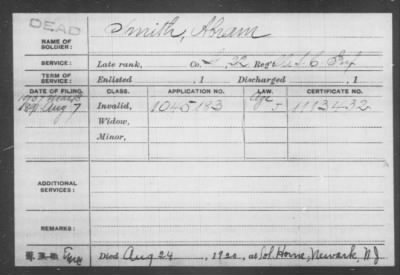 DEAD
NAME OF SOLDIER: Smith, Abram
SERVICE: Late rank, Co. 22 Reg't U.S.C. Inf
TERM OF SERVICE: Enlisted , 1 Discharged , 1
DATE OF FILING. CLASS. APPLICATION NO. LAW. CERTIFICATE NO.
Aug 7 Invalid, 1045183 Age 1113432
Widow,
Minor,
ADDITIONAL SERVICES:
REMARKS:
Died Aug 24, 1920, at Sol. Home, Newark, N.J.